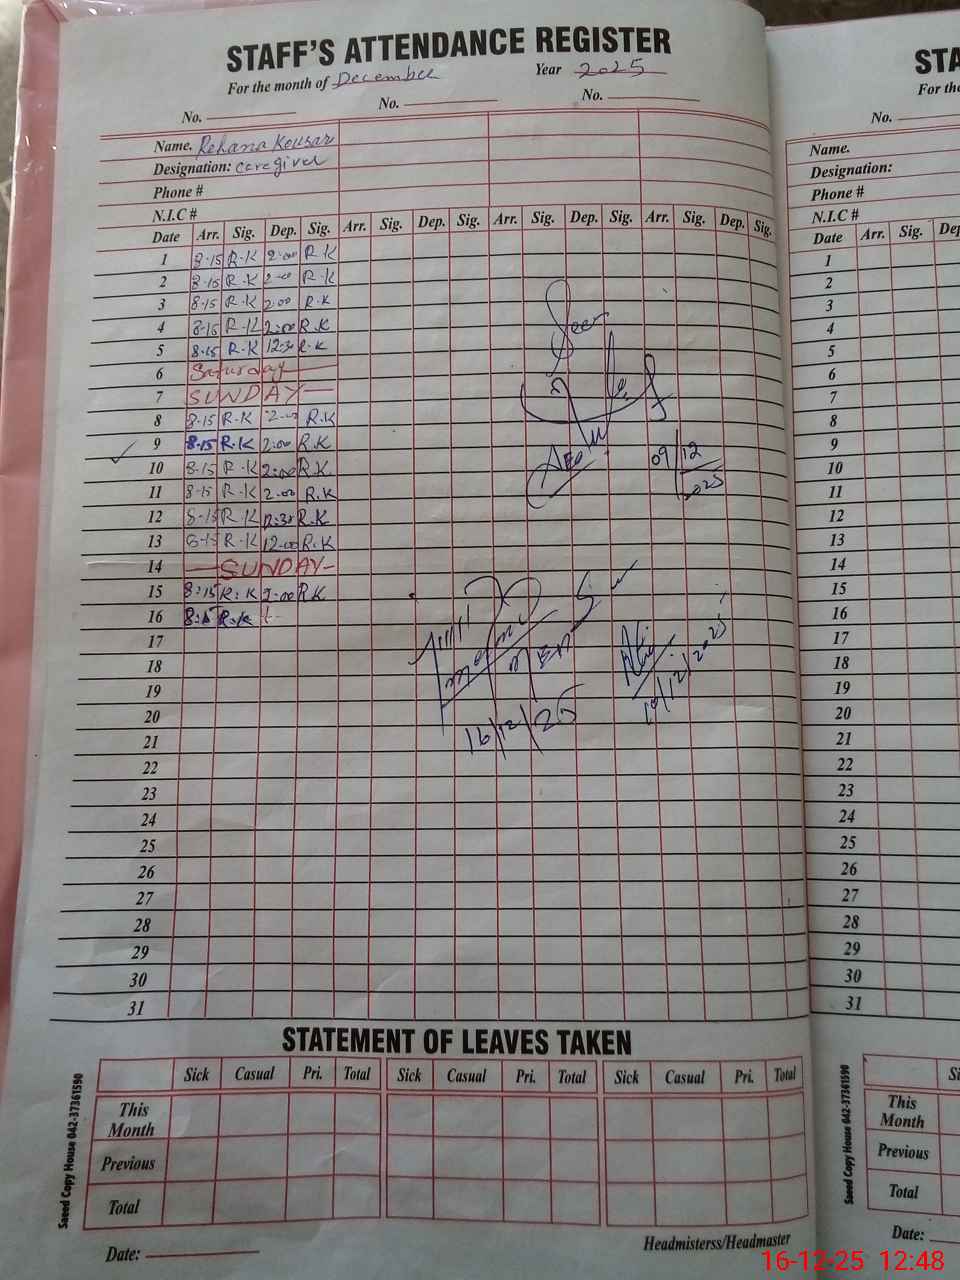 STAFF'S ATTENDANCE REGISTER
For the month of December Year 2025
No. No. No.
Name. Rehana Kousar
Designation: caregiver
Phone #
N.I.C #
Date Arr. Sig. Dep. Sig. Arr. Sig. Dep. Sig. Arr. Sig. Dep. Sig. Arr. Sig. Dep. Sig.
1 8-15 R.K 2:00 R.K
2 8-15 R.K 2:00 R.K
3 8-15 R.K 2:00 R.K
4 8-15 R.K 2:00 R.K
5 8-15 R.K 12:30 R.K
6 Saturday
7 SUNDAY
8 8-15 R.K 2:00 R.K
9 8-15 R.K 2:00 R.K
10 8-15 R.K 2:00 R.K
11 8-15 R.K 2:00 R.K
12 8-15 R.K 12:30 R.K
13 8-15 R.K 12:00 R.K
14 SUNDAY
15 8:15 R.K 2:00 R.K
16 8:15 R.K
17
18
19
20
21
22
23
24
25
26
27
28
29
30
31
Seen
09/12
2025
16/12/25
STATEMENT OF LEAVES TAKEN
Sick Casual Pri. Total Sick Casual Pri. Total Sick Casual Pri. Total
This Month
Previous
Total
Date:
Headmisterss/Headmaster
Saeed Copy House 042-37361590
No.
Name.
Designation:
Phone #
N.I.C #
Date Arr. Sig.
1
2
3
4
5
6
7
8
9
10
11
12
13
14
15
16
17
18
19
20
21
22
23
24
25
26
27
28
29
30
31
This Month
Previous
Total
Date:
Saeed Copy House 042-37361590
16-12-25 12:48